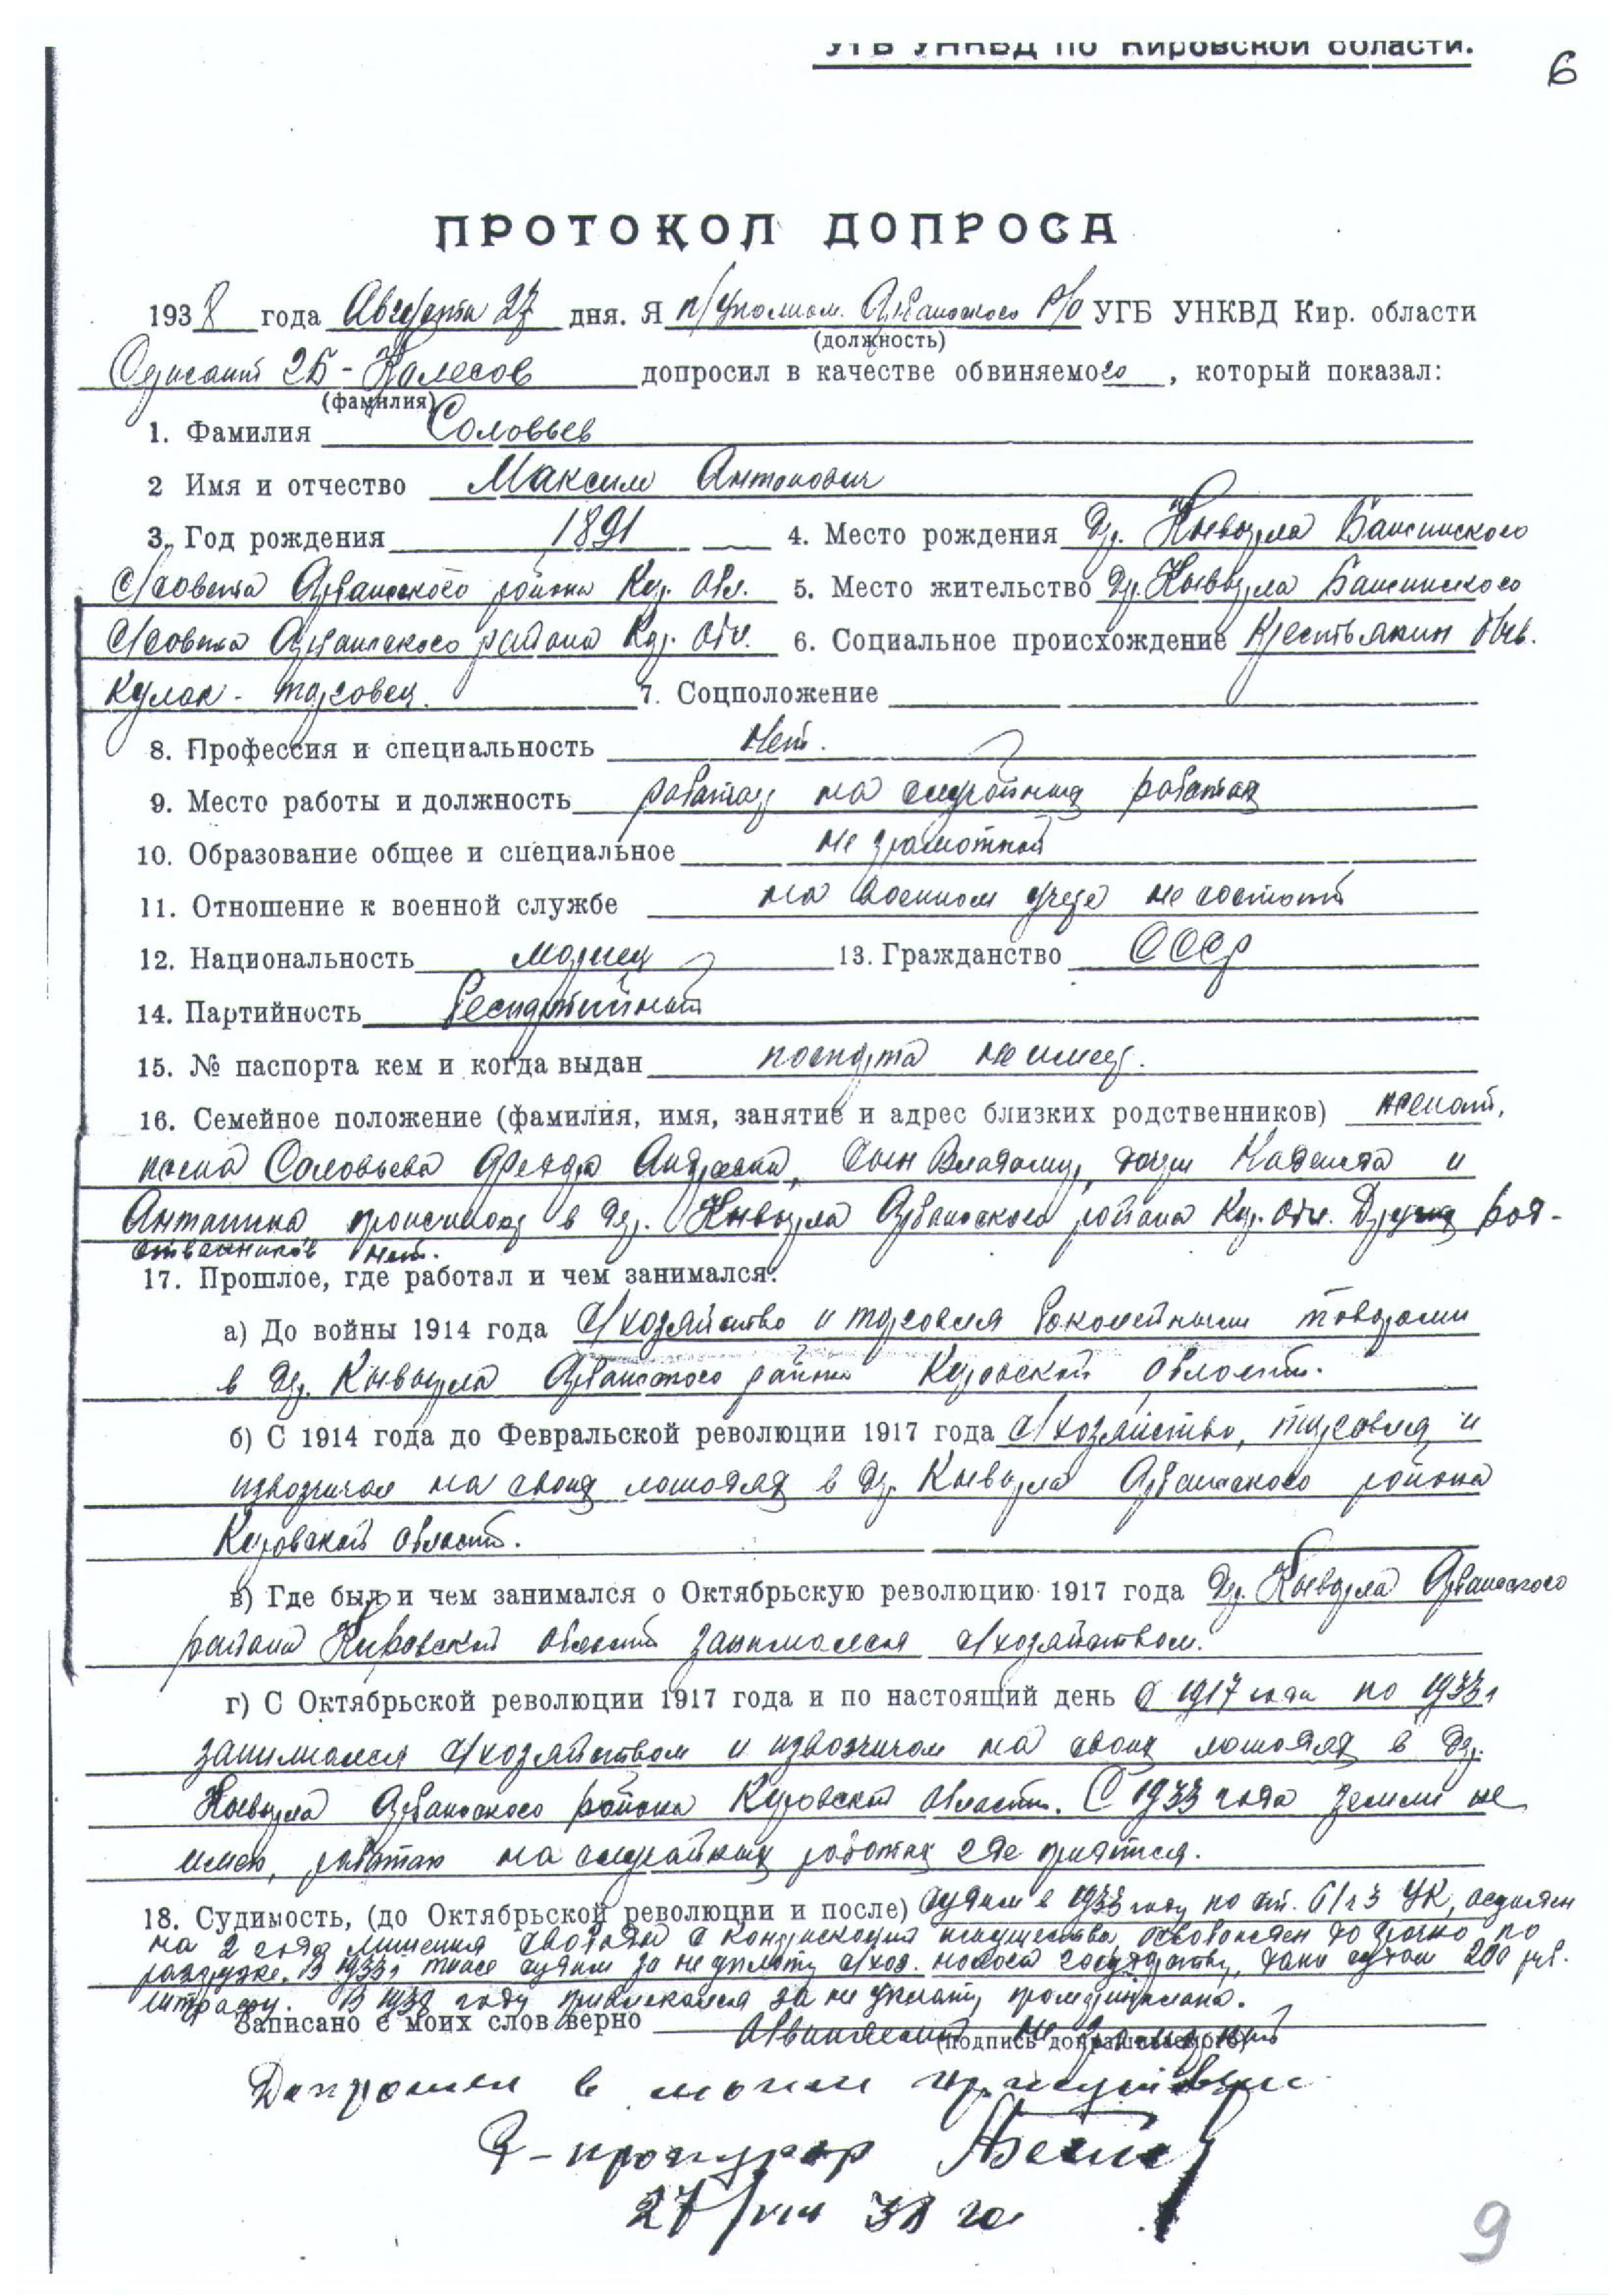 УГБ УНКВД по Кировской области.
6
ПРОТОКОЛ ДОПРОСА
1938 года Августа 27 дня. Я п/уполном. Арбажского р/о УГБ УНКВД Кир. области
(должность)
Колесов допросил в качестве обвиняемого, который показал:
(фамилия)
1. Фамилия Соловьев
2 Имя и отчество Максим Антонович
3. Год рождения 1891 4. Место рождения Др.
С/совета Арбажского района Кир. Обл. 5. Место жительство Др.
С/совета Арбажского района Кир. Обл. 6. Социальное происхождение Крестьянин быв.
Кулак - торговец. 7. Соцположение
8. Профессия и специальность нет.
9. Место работы и должность работаю на случайных работах
10. Образование общее и специальное не грамотный
11. Отношение к военной службе на военном учете не состоит
12. Национальность 13. Гражданство СССР
14. Партийность Беспартийный
15. № паспорта кем и когда выдан паспорта не имею.
16. Семейное положение (фамилия, имя, занятие и адрес близких родственников) женат,
жена Соловьева сын Владимир, дочери и
Антанина в др. Арбажского района Кир. Обл. Других род-
ственников нет.
17. Прошлое, где работал и чем занимался:
а) До войны 1914 года с/хозяйство и торговля товарами
в др. Арбажского района Кировской области.
б) С 1914 года до Февральской революции 1917 года с/хозяйство, торговля и
извозничал на своих лошадях в др. Арбажского района
Кировской области.
в) Где был и чем занимался о Октябрьскую революцию 1917 года др. Арбажского
района Кировской области занимался с/хозяйством.
г) С Октябрьской революции 1917 года и по настоящий день С 1917 года по 1933 г
занимался с/хозяйством и извозничал на своих лошадях в др.
Арбажского района Кировской области. С 1933 года земли не
имею, работаю на случайных работах где придется.
18. Судимость, (до Октябрьской революции и после) судим в 1933 году по ст. 61 ч 3 УК, осужден
на 2 года лишения свободы с конфискацией имущества, освобожден до срочно по
разгрузке. В 1933 г также судим за не уплату с/хоз. налога государству, дано судом 200 руб.
штрафу. В 1938 году привлекался за не уплату
Записано с моих слов верно обвиняемый не грамотный
(подпись допрашиваемого)
Допрошен в моем присутствии
прокурор
27/VIII 38 го
9